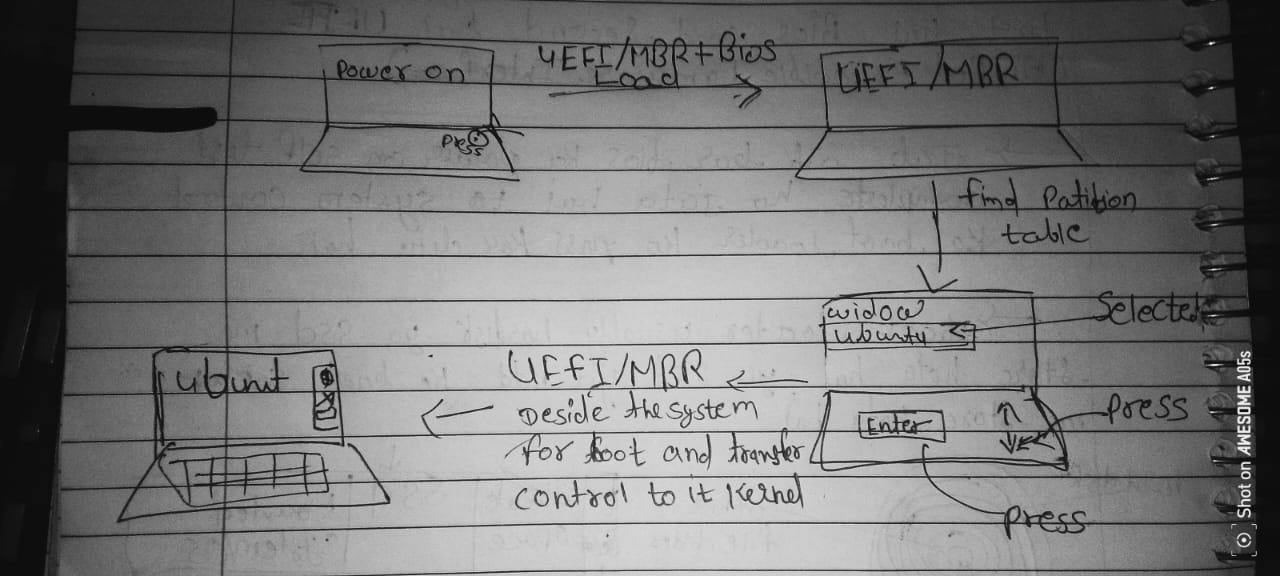 Power on
Press
UEFI/MBR+Bios
Load
UEFI/MBR
find Patition
table
widow
ubunty
Selected
Enter
press
press
UEFI/MBR
Deside the system
for boot and transfer
control to it Kernel
ubunt
Shot on AWESOME A05s